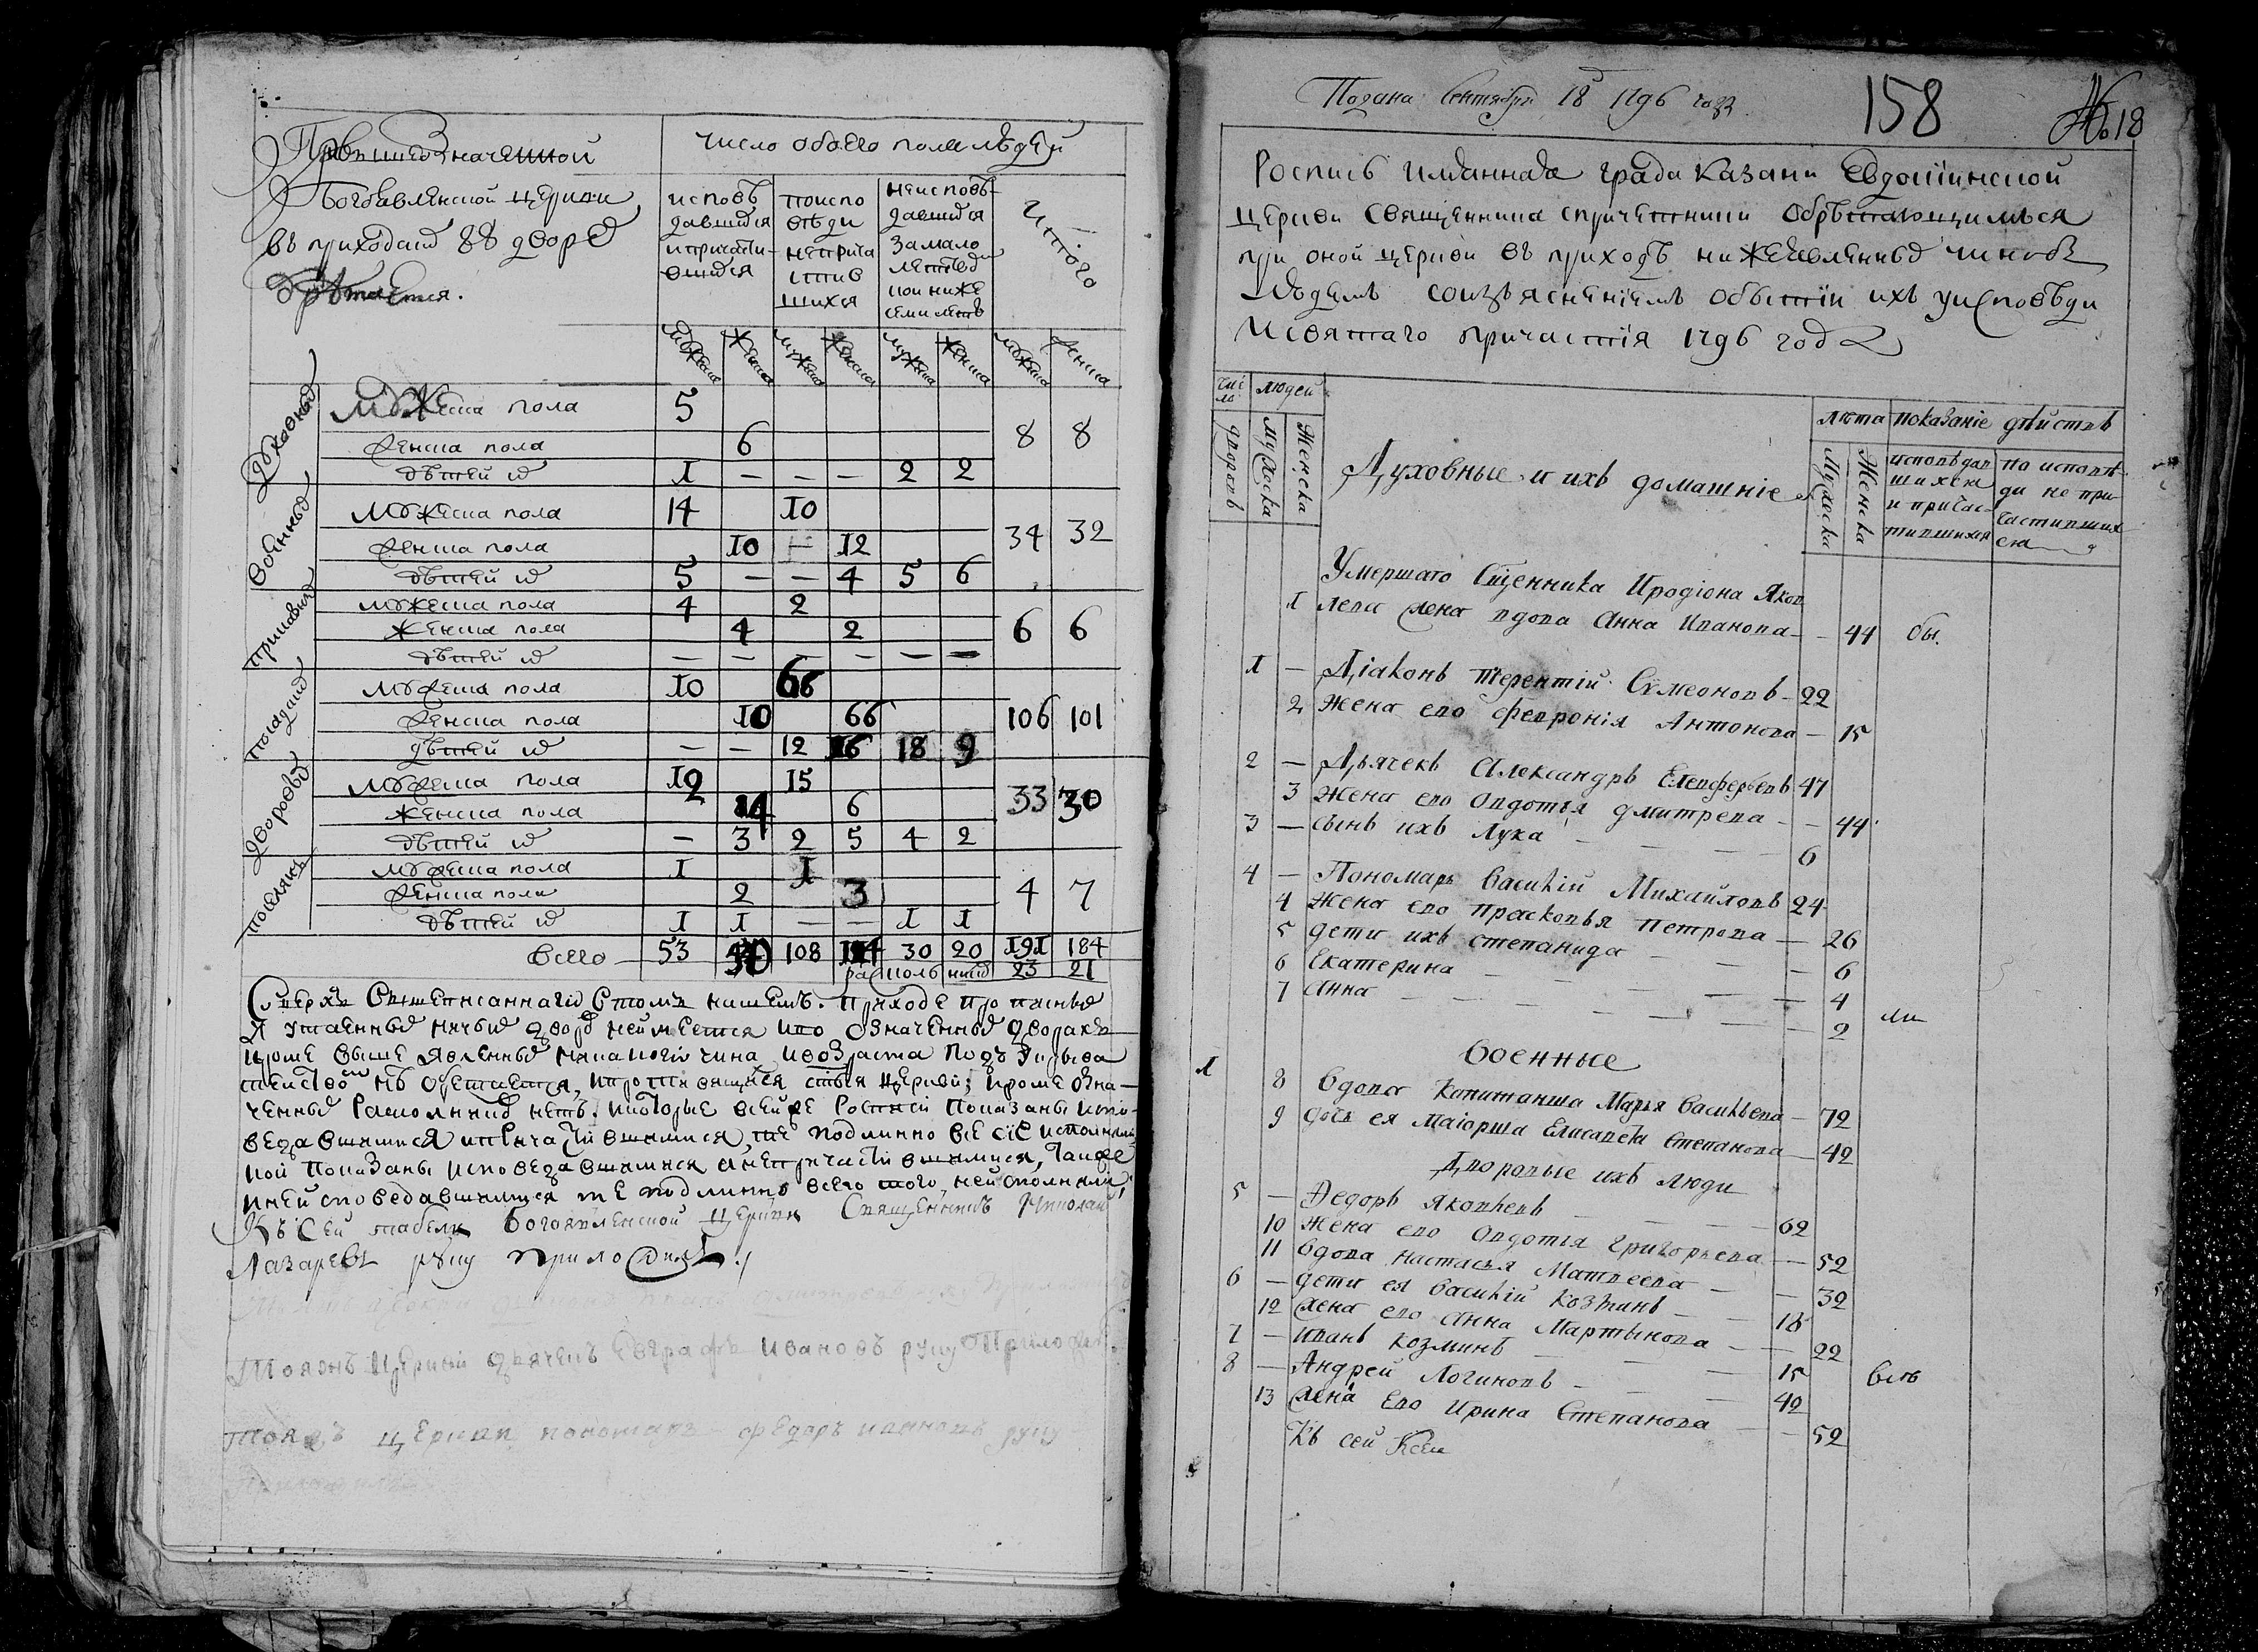 При вышеозначенной
Богоявленской церкви
въ приходахъ 88 дворо
обретается.
число обоего пола людей
исповѣ
давшихся
и причасти-
вшихся
по испо
вѣди
неприча
стив
шихся
неисповѣ-
давшихся
за мало
летствомъ
кои ниже
семи летъ
итого
мужеска женска мужеска женска мужеска женска мужеска женска
духовныхъ
мужеска пола 5
женска пола 6 8 8
дѣтей их 1 — — — 2 2
военныхъ
мужеска пола 14 10
женска пола 10 — 12 34 32
дѣтей их 5 — — 4 5 6
приказныхъ
мужеска пола 4 2
женска пола 4 2 6 6
дѣтей их — — — — — —
посадских
мужеска пола 10 66
женска пола 10 66 106 101
дѣтей их — — 12 16 18 9
дворовыхъ
мужеска пола 12 15
женска пола 14 6 33 30
дѣтей их — 3 2 5 4 2
поселянъ
мужеска пола 1 1
женска пола 2 3 4 7
дѣтей их 1 1 — — 1 1
всего — 53 50 108 114 30 20 191 184
раскольниковъ 23 21
Сверхъ вышеписаннагω в томъ нашемъ приходе прописныхъ
и утаенныхъ ничьихъ дворовъ не имеется и по означенныхъ дворахъ
кроме выше явленныхъ никакого чина и возраста подъ укрыва
тельствомъ не обретается, и противящихся святыя церкви; кроме озна—
ченныхъ раскольниковъ нетъ. которые в сей же росписи показаны испо-
ведавшимися и причастившимися, те подлинно все сие исполнили
кои показаны исповедавшимися а не причастившимися, также
и не исповедавшимися те подлинно всего того, не исполнили,
Къ Сей табели Богоявленской церкви Священникъ Николай
Лазаревъ руку приложилъ./
Тояжъ церкви дьячекъ Евграфъ Ивановъ руку Приложилъ.
тояжъ церкви пономарь федоръ ивановъ руку
Приложилъ
Подана Сентября 18 1796 года
158
№ 18
Роспись имянная града Казани Евдокіинской
церкви священника с причетники обрѣтающимъся
при оной церкви въ приходѣ нижеявленныхъ чиновъ
людемъ со изъясненіемъ о бытіи ихъ у исповѣди
и святаго причастія 1796 года
число людей
дворовъ
мужеска
женска
Духовные и ихъ домашніе
люта показаніе дѣйствъ
Мужеска
Женска
исповѣдав
шихся
и причас-
тившихся
по исповѣ-
ди не при
частивших
ся
Умершаго Священника Иродіона Яков
1 лева жена вдова Анна Иванова — — 44 бы.
1 — Діаконъ Терентій Симеоновъ — 22
2 жена ево февронія Антонова — 15
2 — Дьячекъ Александръ Елевферьевъ 47
3 жена ево овдотья дмитрева — — 44
3 — сынъ ихъ лука — — — 6
4 — Пономарь василій Михайловъ 24
4 жена ево прасковья петрова — 26
5 дети ихъ степанида — — — 6
6 Екатерина — — — — 4
7 Анна — — — — 2 ли
военные
1 8 вдова капитанша Марья васильева — 72
9 дочь ея маіорша Елисавета степанова — 42
Дворовые ихъ люди
5 — Федоръ Яковлевъ — — — 62
10 жена ево овдотья григорьева — 52
11 вдова настасья Матвеева — — 32
6 — дети ея василій козминъ — — 18
12 жена ево Анна Мартынова — — 22
7 — иванъ козминъ — — — 15 всѣ
8 — Андрей Логиновъ — — 42
13 жена ево ирина степанова — — 52
Къ сей